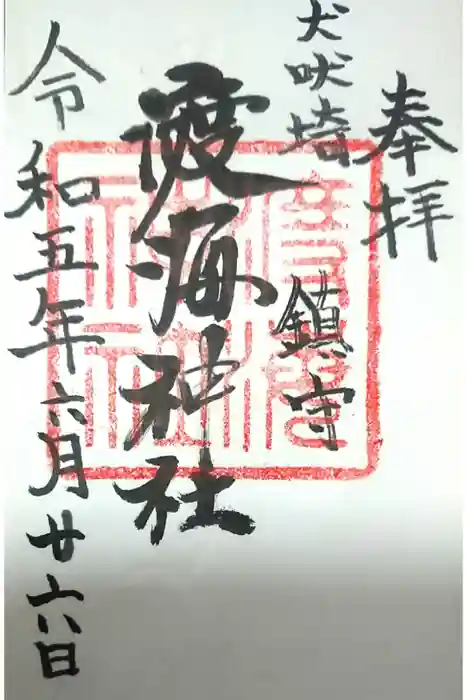 奉拝
犬吠埼
鎮守
渡海神社
令和五年六月廿六日